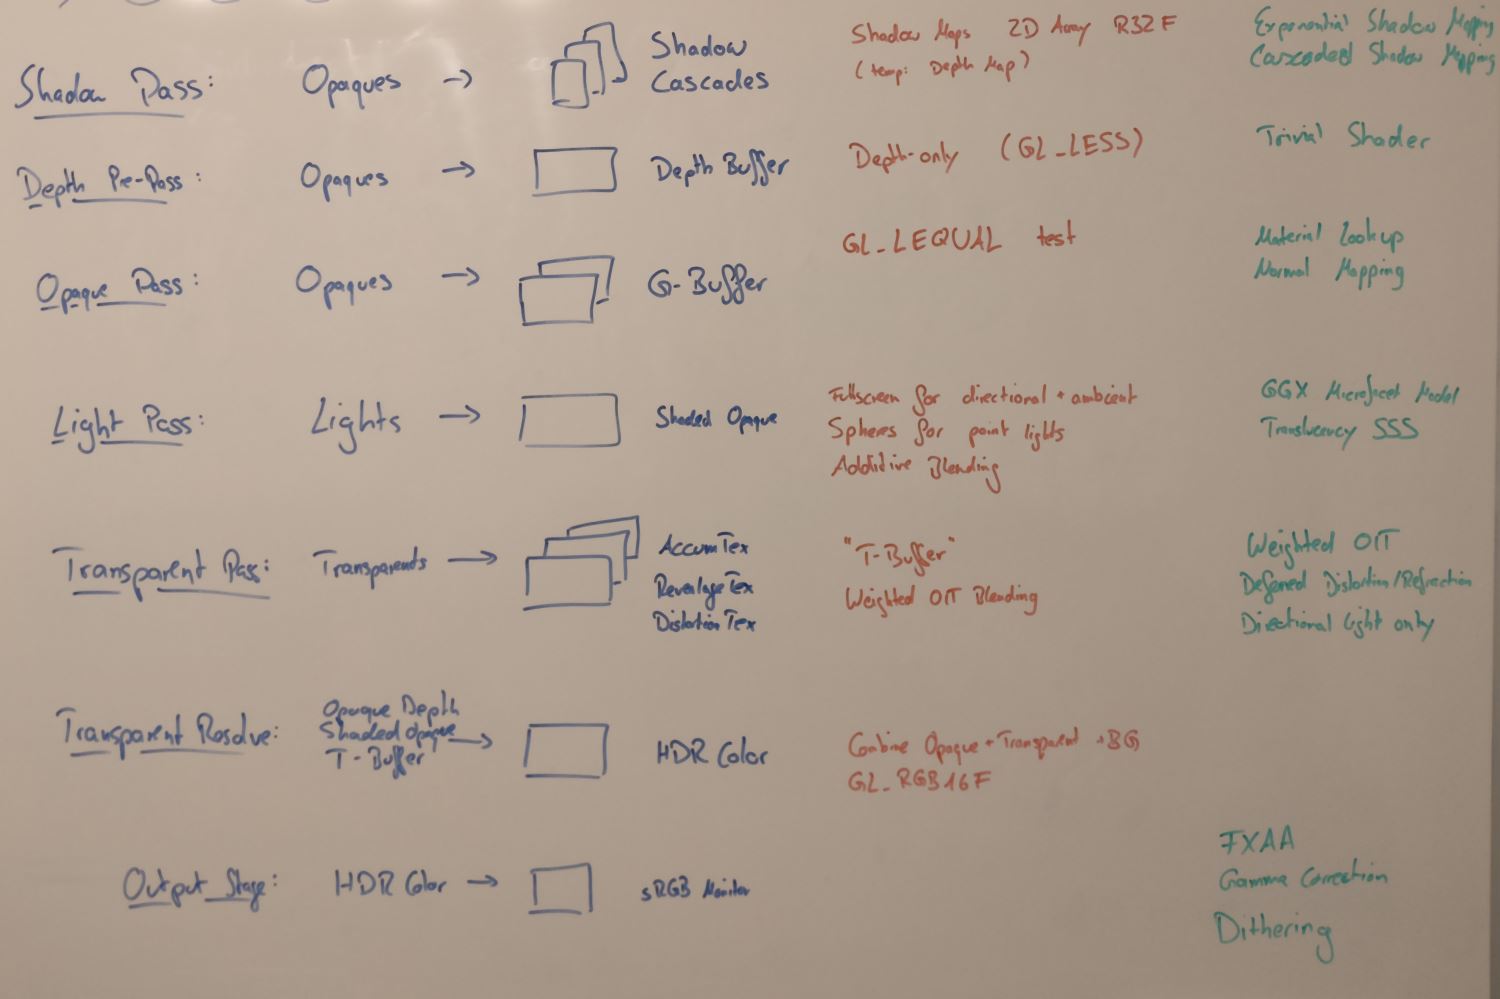 Shadow Pass: Opaques → Shadow Cascades
Shadow Maps 2D Array R32F
(temp: Depth Map)
Exponential Shadow Mapping
Cascaded Shadow Mapping
Depth Pre-Pass: Opaques → Depth Buffer
Depth-only (GL_LESS)
Trivial Shader
Opaque Pass: Opaques → G-Buffer
GL_LEQUAL test
Material Lookup
Normal Mapping
Light Pass: Lights → Shaded Opaque
Fullscreen for directional + ambient
Spheres for point lights
Additive Blending
GGX Microfacet Model
Translucency SSS
Transparent Pass: Transparents →
AccumTex
RevealageTex
DistortionTex
"T-Buffer"
Weighted OIT Blending
Weighted OIT
Deferred Distortion/Refraction
Directional Light only
Transparent Resolve:
Opaque Depth
Shaded Opaque →
T-Buffer
HDR Color
Combine Opaque + Transparent + BG
GL_RGB16F
Output Stage: HDR Color → sRGB Monitor
FXAA
Gamma Correction
Dithering